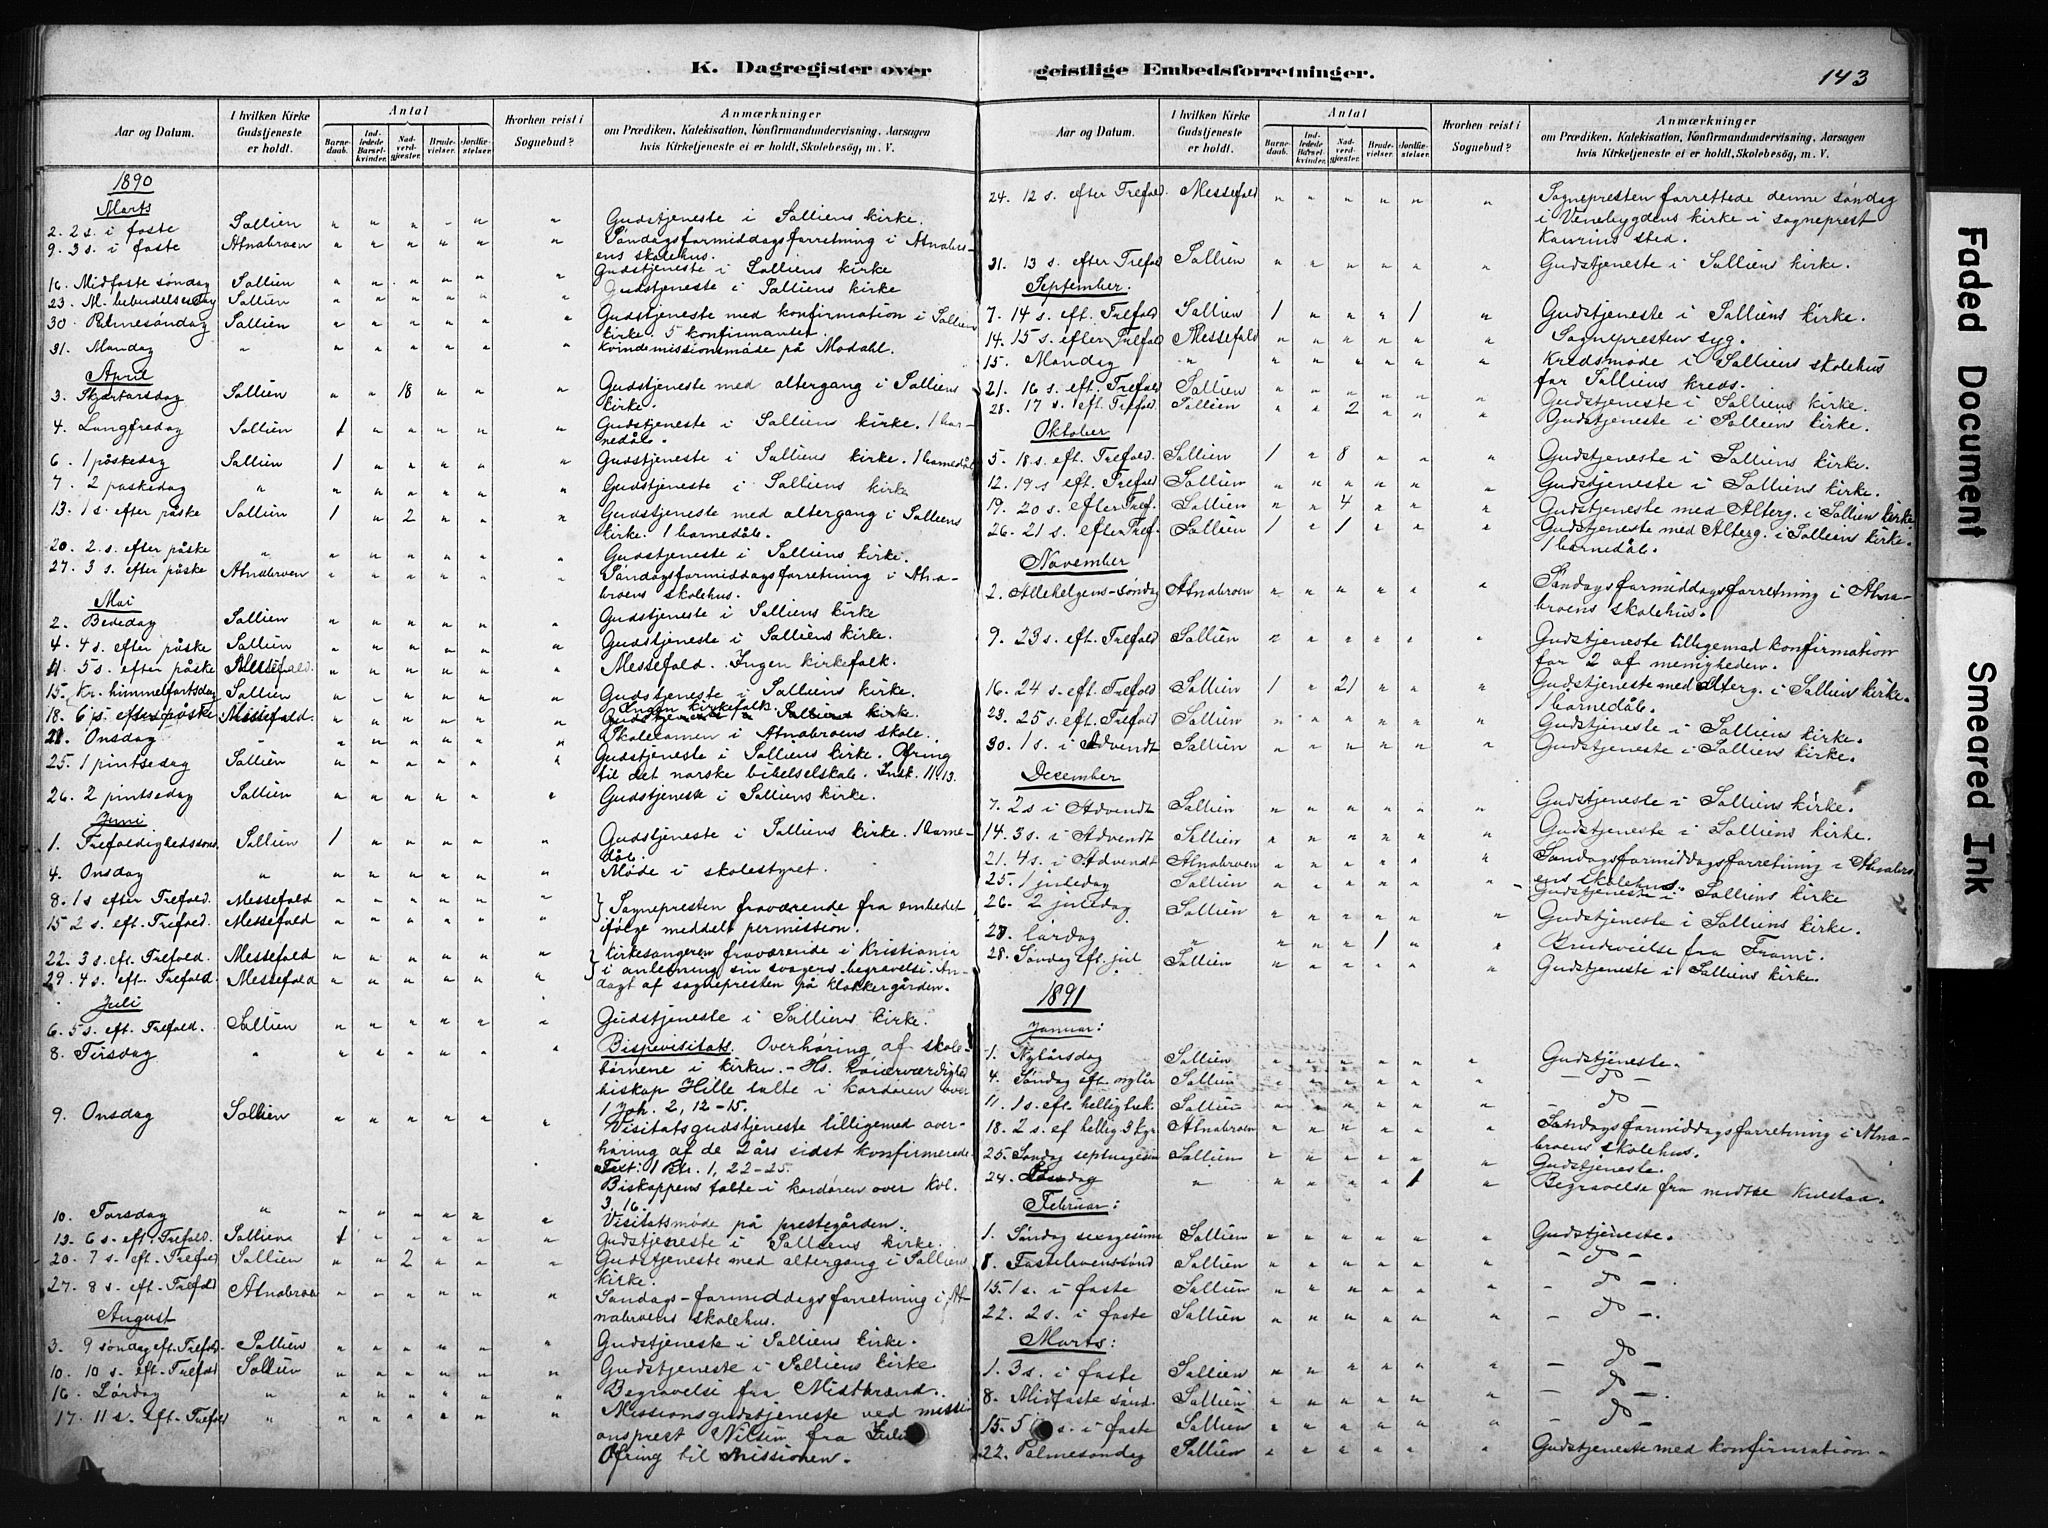 K. Dagregister over
Aar og Datum.
I hvilken Kirke Gudstjeneste er holdt.
Antal
Barnedaab.
Indledede Barselkvinder.
Nadverdgjester.
Brudevielser.
Jordfæstelser.
Hvorhen reist i Sognebud?
Anmærkninger
om Prædiken, Katekisation, Konfirmandundervisning, Aarsagen
hvis Kirketjeneste ei er holdt, Skolebesøg, m. V.
1890
Marts
2. 2 s. i faste Sollien " " " " " " Gudstjeneste i Solliens kirke.
9. 3 s. i faste Atnabroen " " " " " " Søndagsformiddagsforretning i Atnabro-
ens skolehus.
16. Midfaste søndag Sollien " " " " " " Gudstjeneste i Solliens kirke
23. M. bebudelsesdag Sollien " " " " " " Gudstjeneste i Solliens kirke
30. Palmesøndag Sollien " " " " " " Gudstjeneste med konfirmation i Sollien
kirke. 5 konfirmanter.
31. Mandag " " " " " " " Kvindemissionsmøde på Modahl.
April
3. Skjærtorsdag Sollien " " 18 " " " Gudstjeneste med altergang i Solliens
kirke.
4. Langfredag Sollien 1 " " " " " Gudstjeneste i Solliens kirke. 1 bar-
nedåb.
6. 1 påskedag Sollien 1 " " " " " Gudstjeneste i Solliens kirke. 1 barnedåb
7. 2 påskedag " " " " " " " Gudstjeneste i Solliens kirke
13. 1 s. efter påske Sollien 1 " 2 " " " Gudstjeneste med altergang i Solliens
kirke. 1 barnedåb.
20. 2 s. efter påske " " " " " " " Gudstjeneste i Solliens kirke.
27. 3 s. efter påske Atnabroen " " " " " " Søndagsformiddagsforretning i Atna-
broens skolehus.
Mai
2. Bededag Sollien " " " " " " Gudstjeneste i Solliens kirke
4. 4 s. efter påske Sollien " " " " " " Gudstjeneste i Solliens kirke.
11. 5 s. efter påske Messefald. " " " " " " Messefald. Ingen kirkefolk.
15. Kr. himmelfartsdag Sollien " " " " " " Gudstjeneste i Solliens kirke.
18. 6 s. efter påske Messefald. " " " " " " Ingen kirkefolk.
Gudstjeneste i Solliens kirke.
21. Onsdag " " " " " " " Skoleexamen i Atnabroens skole.
25. 1 pintsedag Sollien " " " " " " Gudstjeneste i Solliens kirke. Ofring
til det norske bibelselskab. Indk. 11.13.
26. 2 pintsedag Sollien " " " " " " Gudstjeneste i Solliens kirke.
Juni
1. Trefoldighedssøn. Sollien 1 " " " " " Gudstjeneste i Solliens kirke. 1 barne-
dåb.
4. Onsdag " " " " " " " Møde i skolestyret.
8. 1 s efter Trefold. Messefald " " " " " " } Sognepresten fraværende fra embedet
15 2 s. eft. Trefold. Messefald " " " " " " ifølge meddelt permission.
22. 3 s. eft. Trefold. Messefald " " " " " " } Kirkesangeren fraværende i Kristiania
29. 4 s. eft. Trefold. Messefald " " " " " " i anledning sin svogers begravelse. An-
dagt af sognepresten på klokkergården.
Juli
6. 5 s. eft. Trefold. Sollien " " " " " " Gudstjeneste i Solliens kirke.
8. Tirsdag " " " " " " " Bispevisitats. Overhøring af skole-
børnene i kirken. - Hs. høierværdighed
biskop Hille talte i kordøren over
1 Joh. 2, 12-15.
9. Onsdag Sollien " " " " " " Visitatsgudstjeneste tilligemed over-
høring af de 2 års sidst konfirmerede
Text: 1 Ptr. 1, 22-25.
Biskoppen talte i kordøren over Kol.
3, 16.
10. Torsdag " " " " " " " Visitatsmøde på prestegården.
13. 6 s. eft. Trefold. Solliens 1 " " " " " Gudstjeneste i Solliens kirke.
20. 7 s. eft. Trefold Sollien " " 2 " " " Gudstjeneste med altergang i Solliens
kirke.
27. 8 s. eft. Trefold Atnabroen " " " " " " Søndags-formiddagsforretning i At-
nabroens skolehus.
August
3. 9 søndag eft. Trefold. Sollien " " " " " " Gudstjeneste i Solliens kirke.
10. 10 s. eft. Trefold Sollien " " " " " " Gudstjeneste i Solliens kirke
16. Lørdag " " " " " " " Begravelse fra Mistbrænd.
17. 11 s. eft. Trefold " " " " " " " Missionsgudstjeneste ved missi-
onsprest Nilsen fra Zulu
Ofring til missionen.
geistlige Embedsforretninger.
143
Aar og Datum.
I hvilken Kirke Gudstjeneste er holdt.
Antal
Barnedaab.
Indledede Barselkvinder.
Nadverdgjester.
Brudevielser.
Jordfæstelser.
Hvorhen reist i Sognebud?
Anmærkninger
om Prædiken, Katekisation, Konfirmandundervisning, Aarsagen
hvis Kirketjeneste ei er holdt, Skolebesøg, m. V.
24. 12 s. efter Trefold. Messefald " " " " " " Sognepresten forrettede denne søndag
i Venebygdens kirke i sogneprest
Kaurins sted.
31. 13 s. efter Trefold Sollien " " " " " " Gudstjeneste i Solliens kirke.
September.
7. 14 s. eft. Trefold Sollien 1 " " " 1 " Gudstjeneste i Solliens kirke.
14. 15 s. efter Trefold Messefald " " " " " " Sognepresten syg.
15. Mandag " " " " " " " Kredsmøde i Solliens skolehus
for Solliens kreds.
21. 16 s. eft. Trefold Sollien " " " " " " Gudstjeneste i Solliens kirke.
28. 17 s. eft. Trefold. Sollien " " 2 " " " Gudstjeneste i Solliens kirke.
Oktober
5. 18 s. eft. Trefold. Sollien 1 " 8 " " " Gudstjeneste i Solliens kirke.
12. 19 s eft. Trefold. Sollien " " " " " " Gudstjeneste i Solliens kirke.
19. 20 s. efter Tref. Sollien " " 4 " " " Gudstjeneste med Alterg. i Sollien kirke
26. 21 s. efter Tref. Sollien 1 " 1 " " " Gudstjeneste med Alterg. i Sollien kirke.
1 barnedåb.
November
2. Allehelgens-søndag Atnabroen " " " " " " Søndagsformiddagsforretning i Atna-
broens skolehus.
9. 23 s. eft. Trefold Sollien " " " " " " Gudstjeneste tilligemed konfirmation
for 2 af menigheden.
16. 24 s. eft. Trefold Sollien 1 " 21 " " " Gudstjeneste med Alterg. i Sollien kirke.
1 barnedåb.
23. 25 s. eft. Trefold. Sollien " " " " " " Gudstjeneste i Solliens kirke.
30. 1 s. i Advendt Sollien " " " " " " Gudstjeneste i Solliens kirke.
December
7. 2 s i Advendt Sollien " " " " " " Gudstjeneste i Solliens kirke.
14. 3 s. i Advendt Sollien " " " " " " Gudstjeneste i Solliens kirke.
21. 4 s. i Advendt Atnabroen " " " " " " Søndagsformiddagsforretning i Atnabro-
ens skolehus.
25. 1 juledag Sollien " " " " " " Gudstjeneste i Solliens kirke
26. 2 juledag Sollien " " " " " " Gudstjeneste i Solliens kirke.
27. Lørdag " " " " 1 " " Brudevielse fra Frami.
28. Søndag eft. jul Sollien " " " " " " Gudstjeneste i Solliens kirke.
1891
Januar:
1. Nytårsdag Sollien " " " " " " Gudstjeneste.
4. Søndag eft. nytår Sollien " " " " " " - do -
11. 1 s. eft. helligtrek. Sollien " " " " " " - do -
18. 2 s. ef hellig 3 kgr Atnabroen " " " " " " Søndagsformiddagsforretning i Atna-
broens skolehus.
25. Søndag septuagesim Sollien " " " " " " Gudstjeneste.
24. Lørdag " " " " " 1 " Begravelse fra midtse Kulstad.
Februar:
1. Søndag sexagesima Sollien " " " " " " Gudstjeneste.
8. Fastelavenssønd Sollien " " " " " " - do -
15. 1 s. i faste Sollien " " " " " " - do -
22. 2 s. i faste Sollien " " " " " " - do -
Marts:
1. 3 s. i faste Sollien " " " " " " - do -
8. Midfaste sønd. Sollien " " " " " " - do -
15. 5 s. i faste Sollien " " " " " " - do -
22. Palmesøndag Sollien " " " " " " Gudstjeneste med konfirmation
Faded Document
Smeared Ink